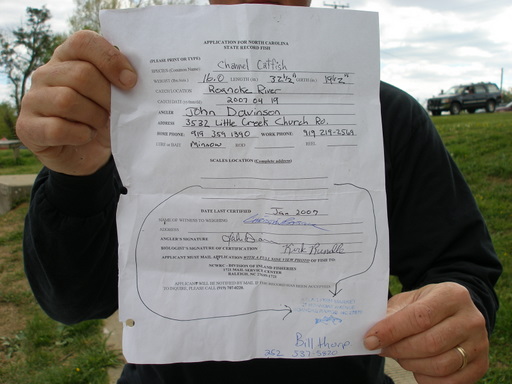 APPLICATION FOR NORTH CAROLINA
STATE RECORD FISH
(PLEASE PRINT OR TYPE)
SPECIES (Common Name) Channel Catfish
WEIGHT 16.0 LENGTH 32½" GIRTH 19½"
CATCH LOCATION Roanoke River
CATCH DATE 2007 04 19
ANGLER John Davinson
ADDRESS 3532 Little Creek Church Rd.
HOME PHONE: 919 359 1390 WORK PHONE: 919-219-2569
LURE or BAIT Minnow ROD REEL
SCALES LOCATION (Complete address)
DATE LAST CERTIFIED Jan 2007
NAME OF WITNESS TO WEIGHING
ADDRESS
ANGLER'S SIGNATURE
BIOLOGIST'S SIGNATURE OF CERTIFICATION Kirk Rundle
APPLICANT MUST MAIL APPLICATION WITH A FULL SIDE VIEW PHOTO OF FISH TO
NCWRC - DIVISION OF INLAND FISHERIES
1721 MAIL SERVICE CENTER
RALEIGH, NC
APPLICANT WILL BE NOTIFIED BY MAIL
PLEASE CALL
Bill thorp
252 537-5420